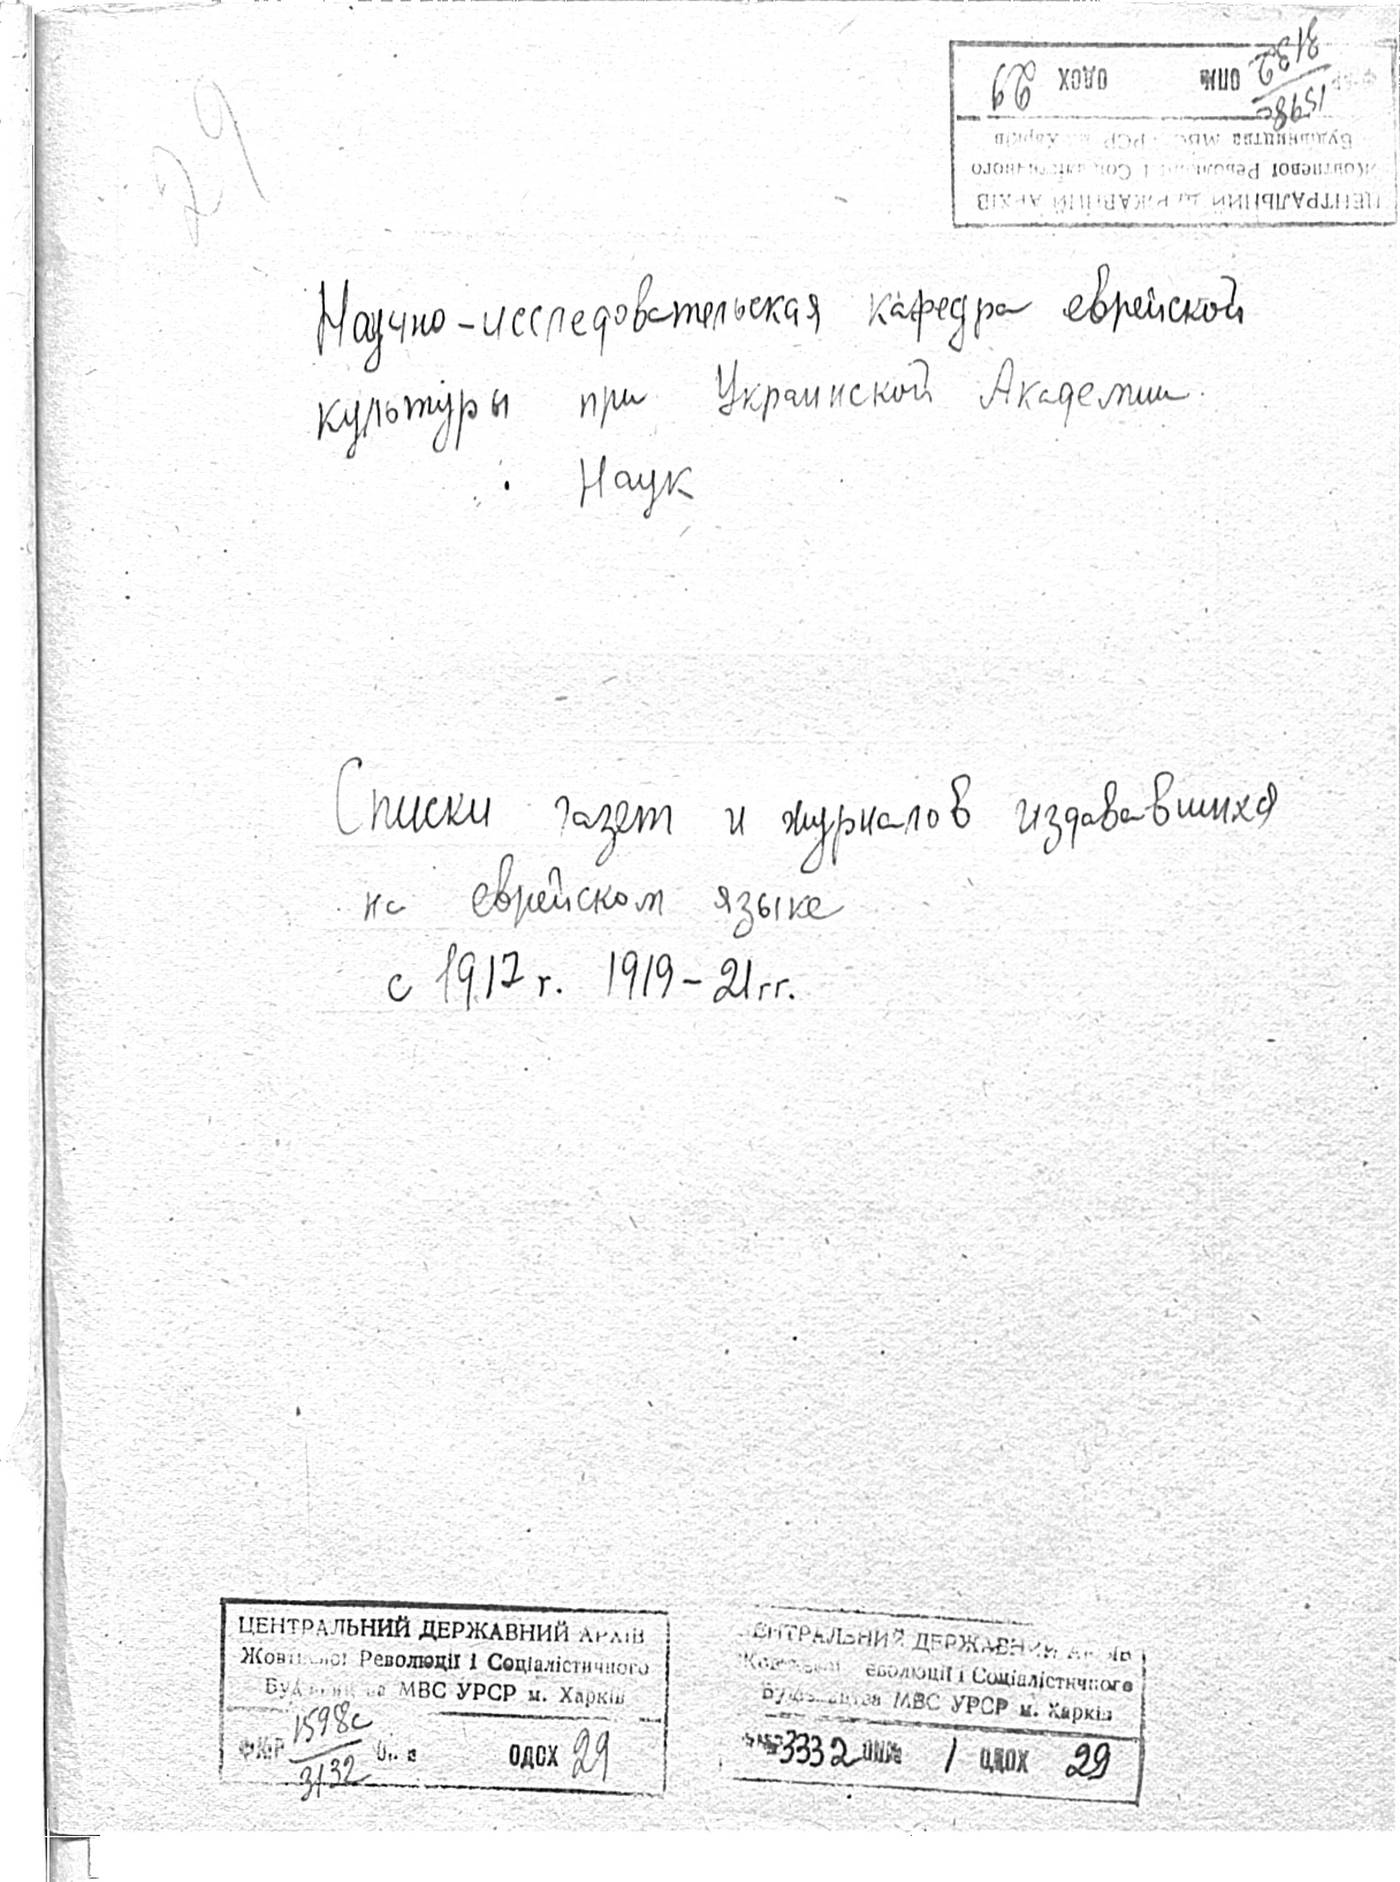 ЦЕНТРАЛЬНИЙ ДЕРЖАВНИЙ АРХІВ
Жовтневої Революції і Соціалістичного
Будівництва МВС УРСР м. Харків
1598с
3132
ОП№ ОДСХ 29
Научно-исследовательская кафедра еврейской
культуры при Украинской Академии
Наук
Списки газет и журналов издававшихся
на еврейском языке
с 1917 г. 1919-21 гг.
ЦЕНТРАЛЬНИЙ ДЕРЖАВНИЙ АРХІВ
Жовтневої Революції і Соціалістичного
Будівництва МВС УРСР м. Харків
1598с
3132
ОДСХ 29
ЦЕНТРАЛЬНИЙ ДЕРЖАВНИЙ АРХІВ
Жовтневої Революції і Соціалістичного
Будівництва МВС УРСР м. Харків
3332 ОП№ 1 ОДСХ 29